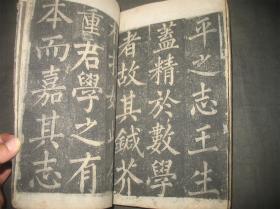 平之志王生
蓋精於數學
者故其鍼芥
重君學之有
本而嘉其志